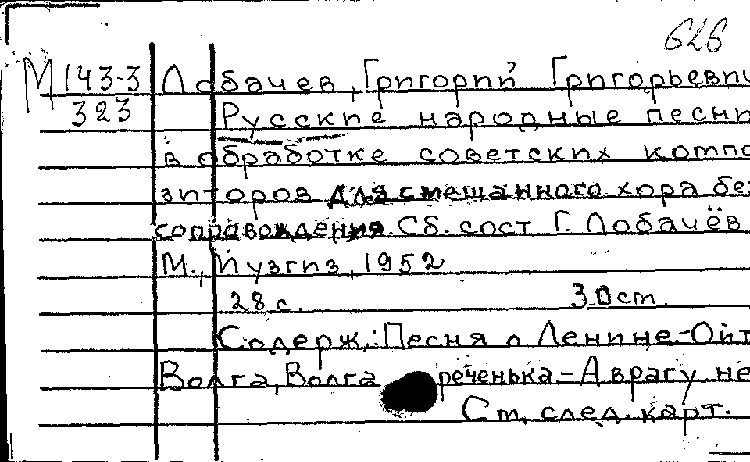 626
М 143-3 Лобачев, Григорий Григорьеви
323 Русские народные песни
в обработке советских компо
зиторов для смешанного хора без
сопровождения. Сб. сост Г. Лобачёв
М., Музгиз, 1952
28 с. 30 ст.
Содерж.: Песня о Ленине.-Ой т
Волга, Волга реченька.-А врагу не
См. след. карт.